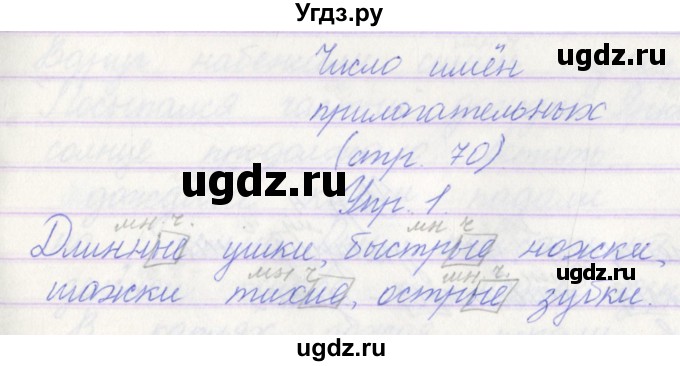 Угдз.ру
Число имён
ugdz.ru
прилагательных
(стр. 70)
ugdz.ru
ugdz.ru
Упр. 1
мн. ч. мн. ч
Длинные ушки, быстрые ножки,
мн. ч. мн. ч.
шажки тихие, острые зубки.
ugdz.ru
ugdz.ru